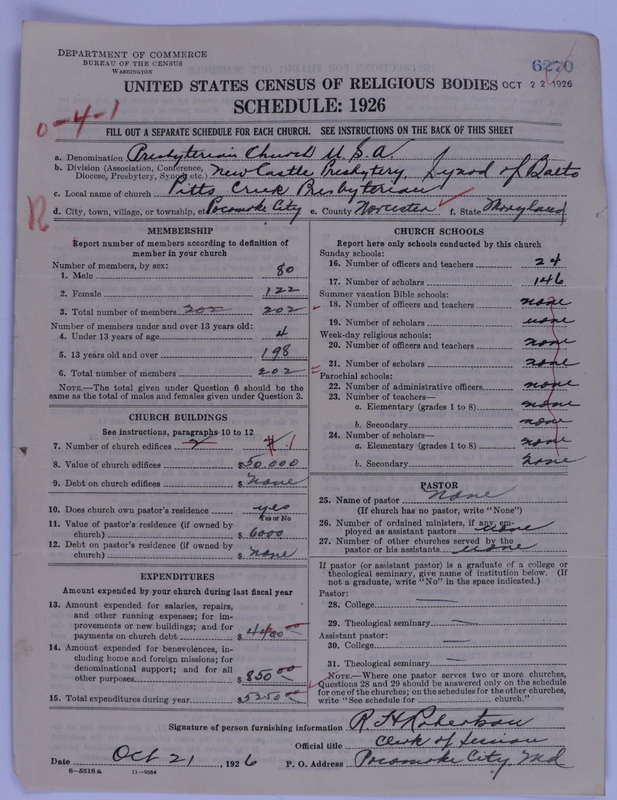 DEPARTMENT OF COMMERCE
BUREAU OF THE CENSUS
WASHINGTON
6270
UNITED STATES CENSUS OF RELIGIOUS BODIES OCT 22 1926
SCHEDULE: 1926
0-4-1
FILL OUT A SEPARATE SCHEDULE FOR EACH CHURCH. SEE INSTRUCTIONS ON THE BACK OF THIS SHEET
a. Denomination Presbyterian Church U.S.A.
b. Division (Association, Conference, Diocese, Presbytery, Synod etc.) New Castle Presbytery, Synod of Balto
c. Local name of church Pitts Creek Presbyterian
d. City, town, village, or township, etc. Pocomoke City e. County Worcester f. State Maryland
MEMBERSHIP
Report number of members according to definition of
member in your church
Number of members, by sex:
1. Male 80
2. Female 122
3. Total number of members 202 202
Number of members under and over 13 years old:
4. Under 13 years of age 4
5. 13 years old and over 198
6. Total number of members 202
NOTE.—The total given under Question 6 should be the
same as the total of males and females given under Question 3.
CHURCH BUILDINGS
See instructions, paragraphs 10 to 12
7. Number of church edifices 1
8. Value of church edifices $50,000
9. Debt on church edifices $ none
10. Does church own pastor's residence yes
Yes or No
11. Value of pastor's residence (if owned by
church) $ 6000
12. Debt on pastor's residence (if owned by
church) $ none
EXPENDITURES
Amount expended by your church during last fiscal year
13. Amount expended for salaries, repairs,
and other running expenses; for im-
provements or new buildings; and for
payments on church debt $ 4400 00
14. Amount expended for benevolences, in-
cluding home and foreign missions; for
denominational support; and for all
other purposes $ 850 00
15. Total expenditures during year $5250 00
CHURCH SCHOOLS
Report here only schools conducted by this church
Sunday schools:
16. Number of officers and teachers 24
17. Number of scholars 146
Summer vacation Bible schools:
18. Number of officers and teachers none
19. Number of scholars none
Week-day religious schools:
20. Number of officers and teachers none
21. Number of scholars none
Parochial schools:
22. Number of administrative officers none
23. Number of teachers—
a. Elementary (grades 1 to 8) none
b. Secondary none
24. Number of scholars—
a. Elementary (grades 1 to 8) none
b. Secondary none
PASTOR
25. Name of pastor None
(If church has no pastor, write "None")
26. Number of ordained ministers, if any, em-
ployed as assistant pastors none
27. Number of other churches served by the
pastor or his assistants none
If pastor (or assistant pastor) is a graduate of a college or
theological seminary, give name of institution below. (If
not a graduate, write "No" in the space indicated.)
Pastor:
28. College —
29. Theological seminary —
Assistant pastor:
30. College —
31. Theological seminary —
NOTE.—Where one pastor serves two or more churches,
Questions 28 and 29 should be answered only on the schedule
for one of the churches; on the schedules for the other churches,
write "See schedule for church."
Signature of person furnishing information R. H. Robertson
Official title Clerk of Session
Date Oct 21, 1926 P. O. Address Pocomoke City, Md
8-5518 a 11-9054